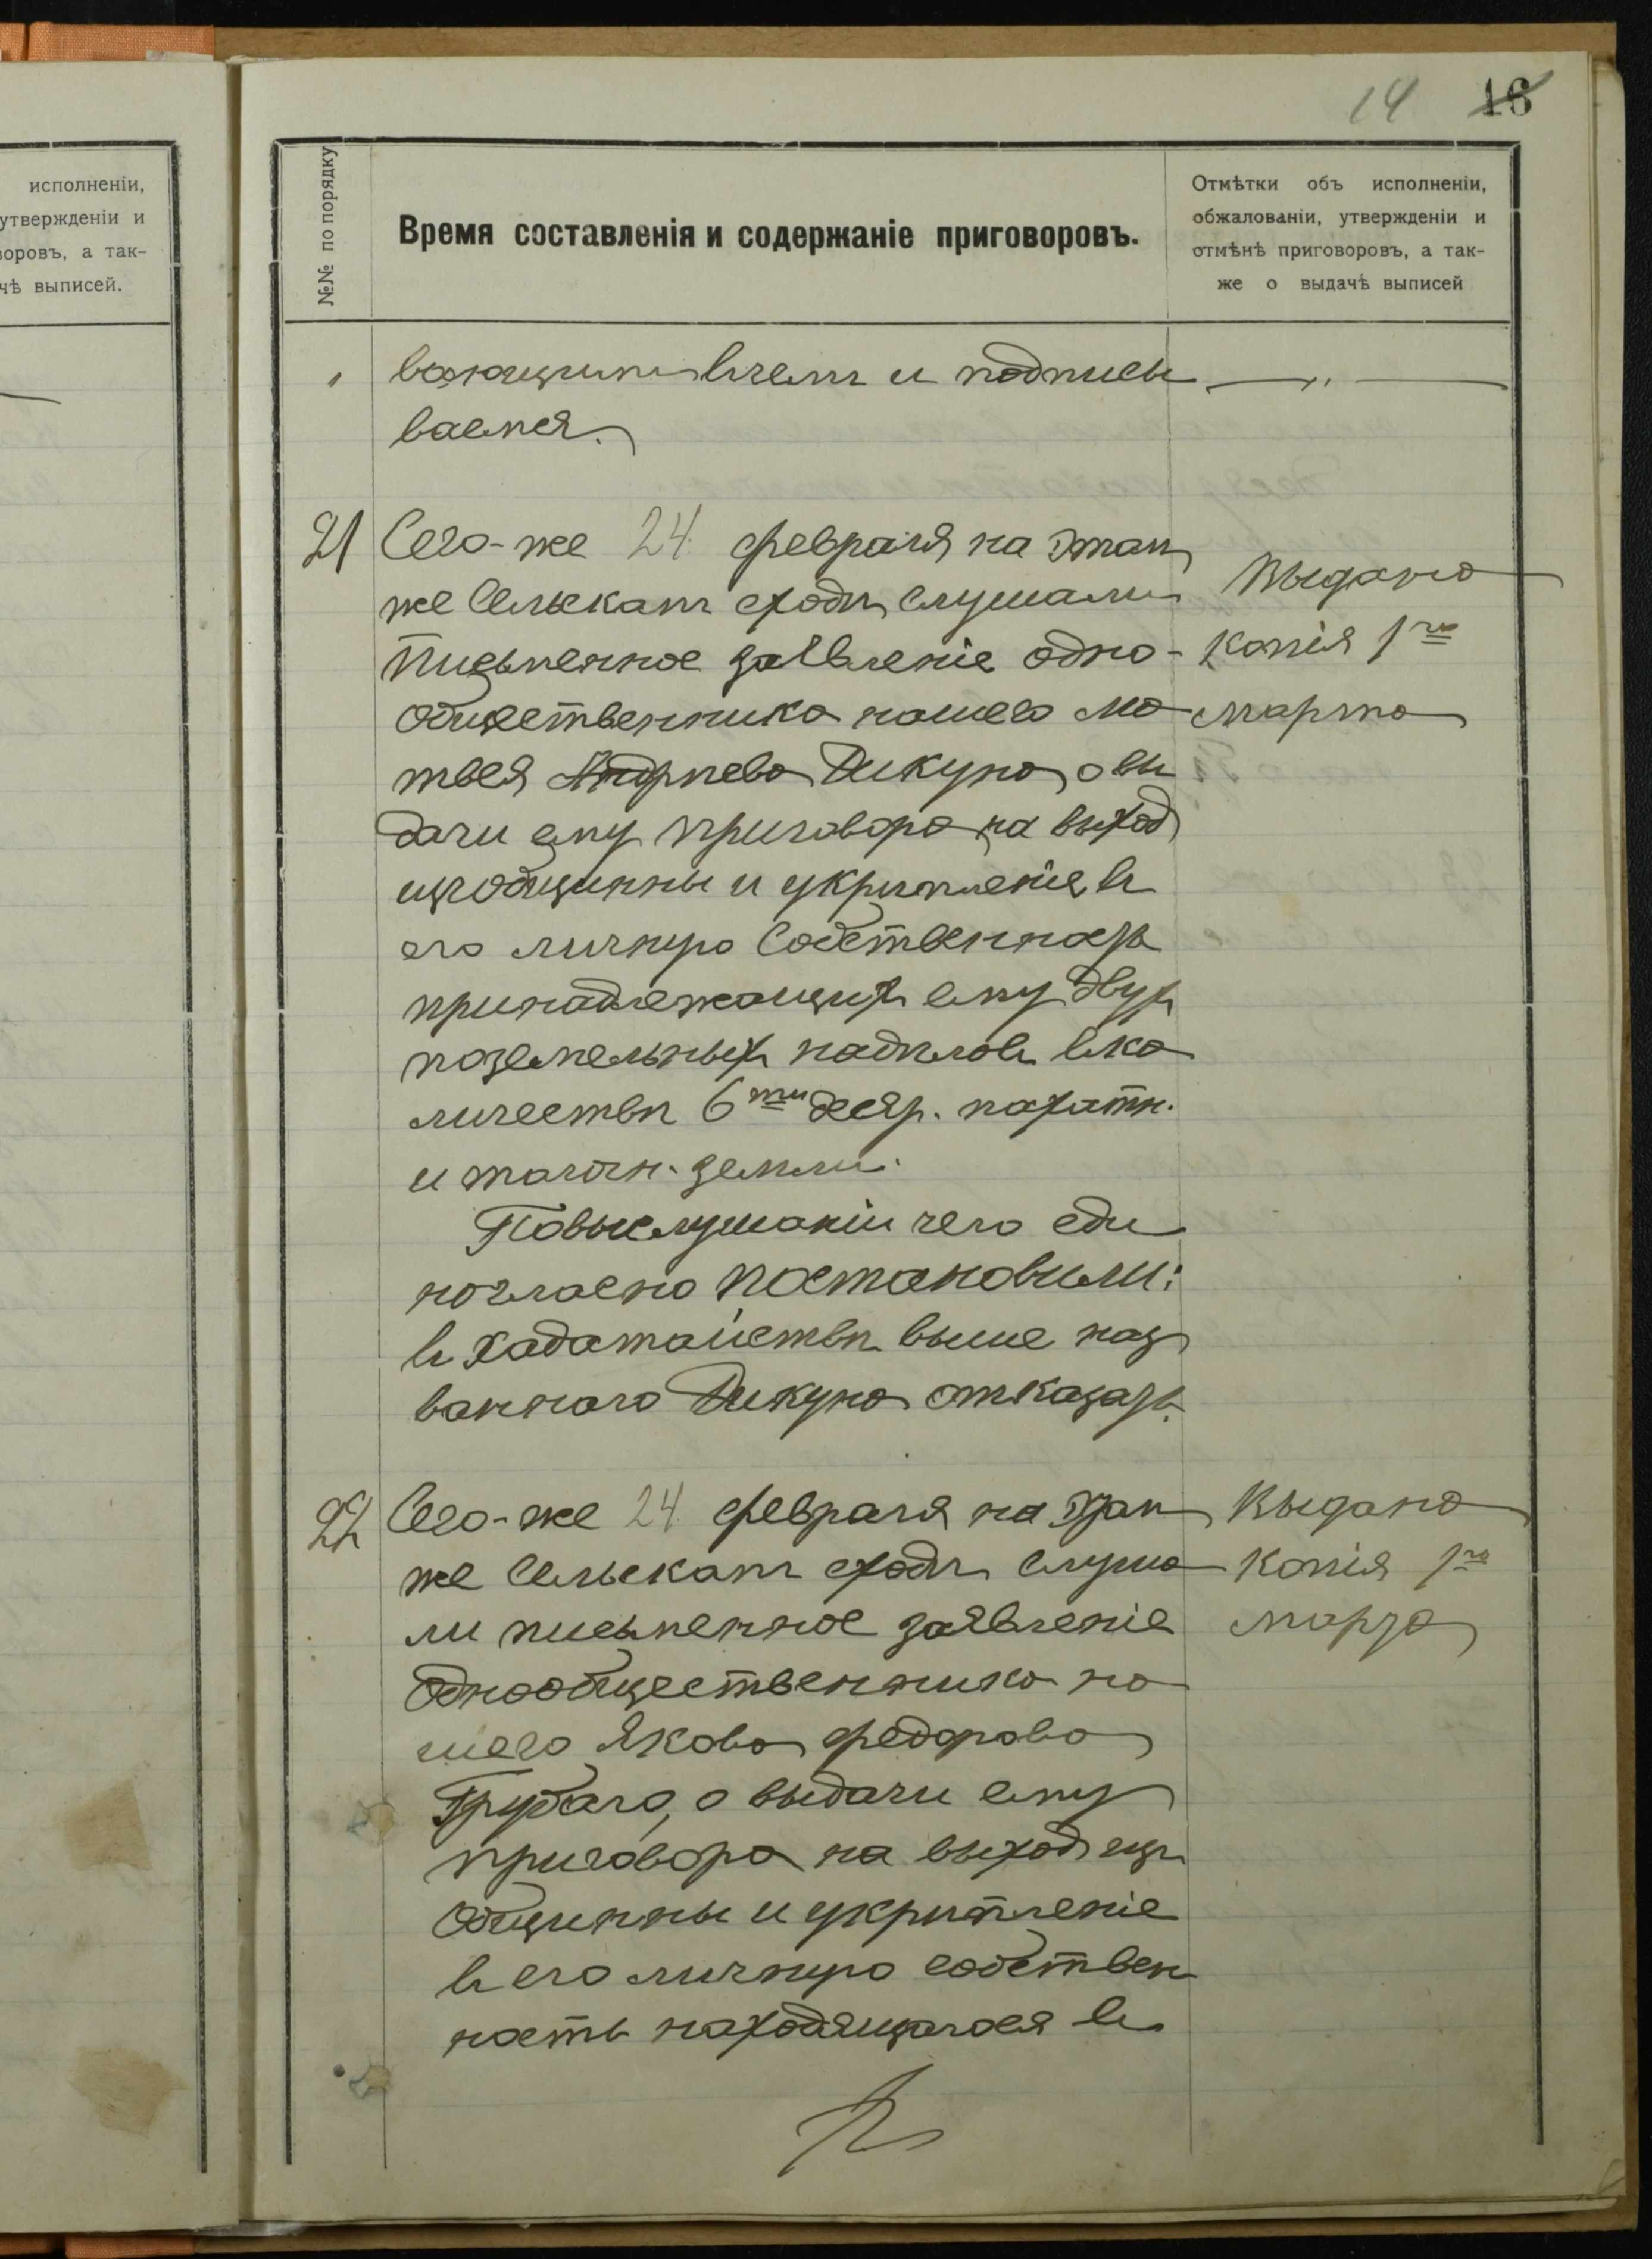 исполненіи,
утвержденіи и
воровъ, а так-
чѣ выписей.
14 16
№№ по порядку
Время составленія и содержаніе приговоровъ.
Отмѣтки объ исполненіи,
обжалованіи, утвержденіи и
отмѣнѣ приговоровъ, а так-
же о выдачѣ выписей
и подписы
ваемся.
21
Сего-же 24 февраля на этом
же Сельскомъ сходѣ слушали
Письменное заявленіе одно-
общественника нашего Ма
твея Дикуна, о вы
дачи ему приговора на выход
изъ общинны и укрѣпленіе въ
его личную Собственность
принадлежащихъ ему двухъ
поземельныхъ надѣловъ въ ко
личествѣ 6ти десят. пахатн.
и толочн. земли.
По выслушаніи чего еди
ногласно постановили:
въ хадатайствѣ выше наз
ваннаго Дикуна отказать.
Выдана
Копія 1го
марта
22
Сего-же 24 февраля на этом
же Сельскомъ сходѣ слуша
ли письменное заявленіе
однообщественника на
шего Якова Федорова
Грубаго, о выдачи ему
приговора на выход изъ
Общинны и укрѣпленіе
въ его личную собствен
ность находящагося въ
Выдана
Копія 1го
марта